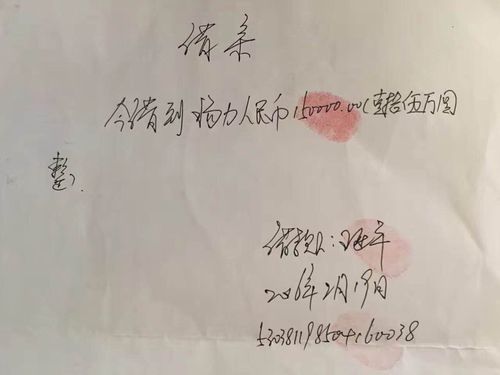 借条
今借到杨力人民币150000.00(壹拾伍万圆
整)
借款人:
2016年2月19日
530381198504160038